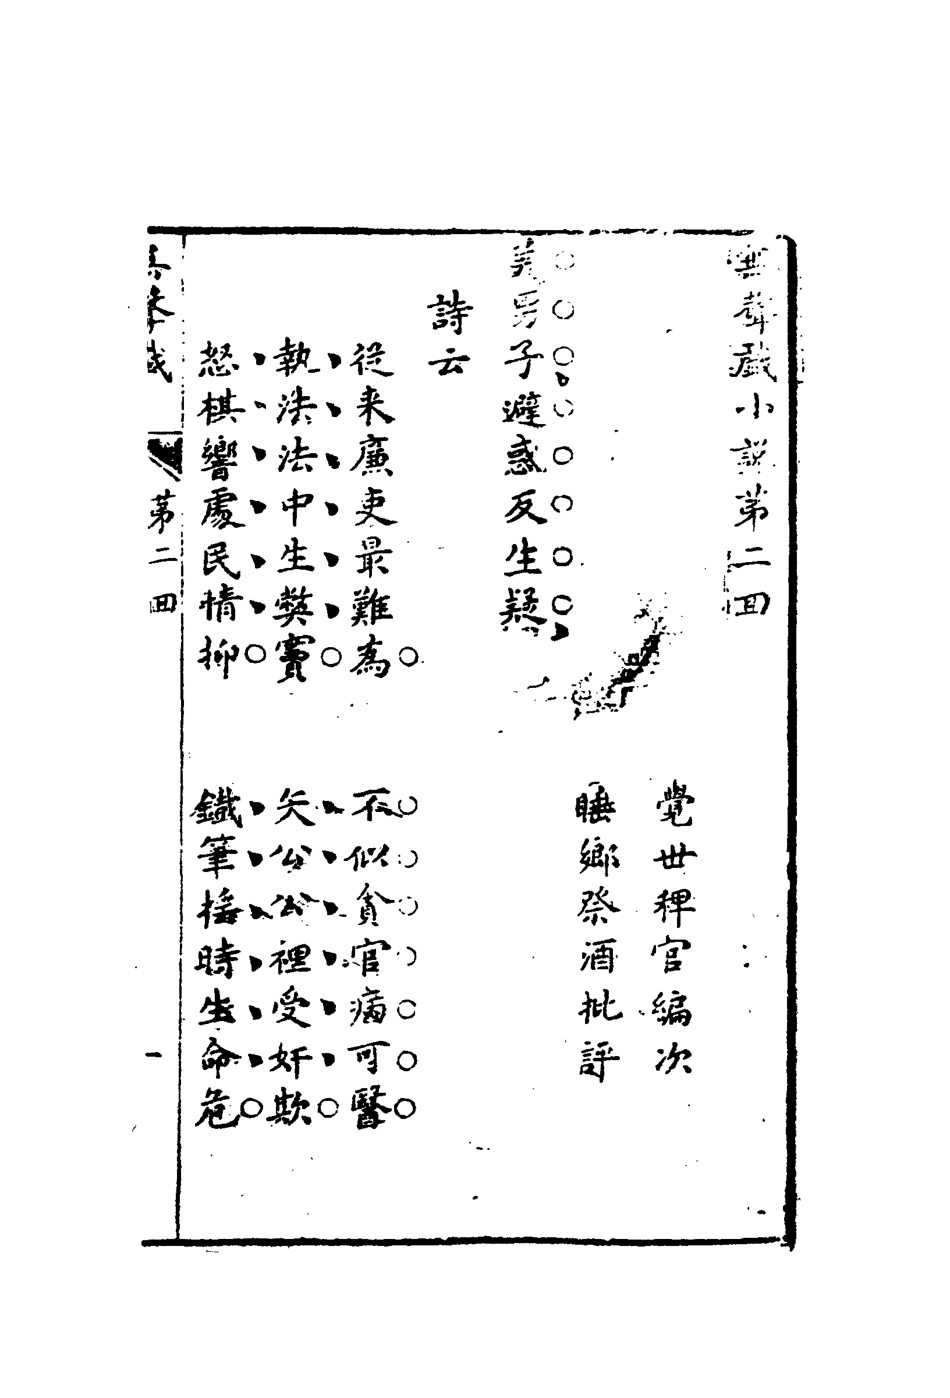 無聲戲小說第二回
覺世稗官編次
睡鄉祭酒批評
美男子避惑反生疑
詩云
從来廉吏最難為　不似貪官病可醫
執法法中生獘竇　矢公公裡受奸欺
怒棋響處民情抑　鐵筆摇時生命危
無聲戲　第二回　一